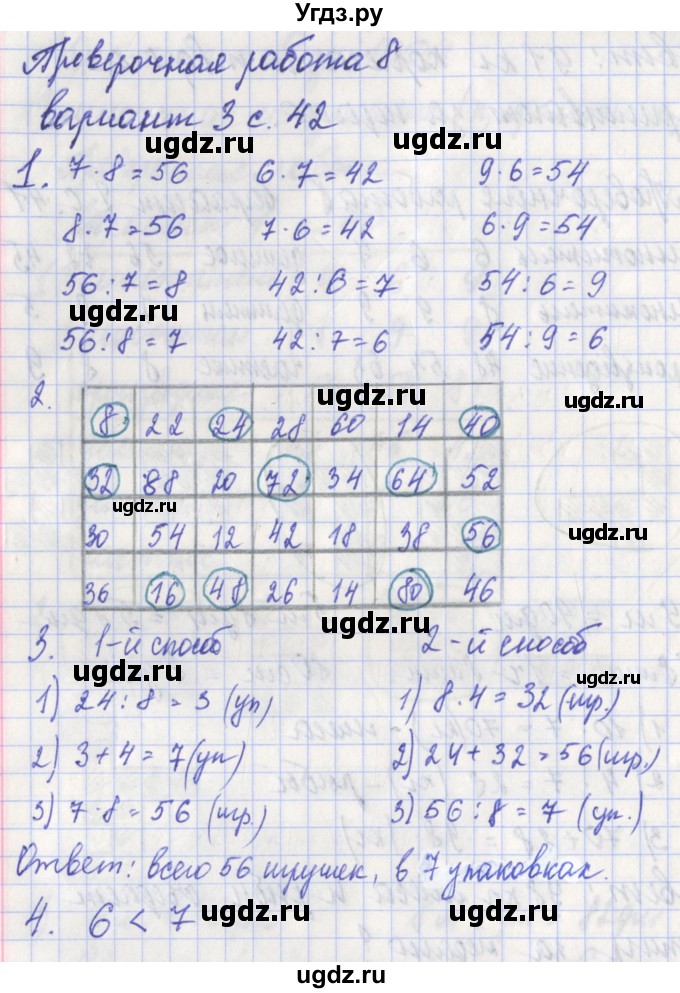 Угдз.ру
Проверочная работа 8
вариант 3 с. 42
ugdz.ru
1. 7·8=56 6·7=42 9·6=54
8·7=56 7·6=42 6·9=54
56:7=8 42:6=7 54:6=9
ugdz.ru
56:8=7 42:7=6 54:9=6
ugdz.ru ugdz.ru
2.
8 22 24 28 60 14 40
32 88 20 72 34 64 52
ugdz.ru
30 54 12 42 18 38 56
ugdz.ru
36 16 48 26 14 80 46
ugdz.ru
3. 1-й способ 2-й способ
ugdz.ru
1) 24:8=3 (уп) 1) 8·4=32 (игр.)
2) 3+4=7 (уп) 2) 24+32=56 (игр.)
ugdz.ru
3) 7·8=56 (игр) 3) 56:8=7 (уп.)
Ответ: всего 56 игрушек, в 7 упаковках.
4. 6<7
ugdz.ru ugdz.ru
ugdz.ru